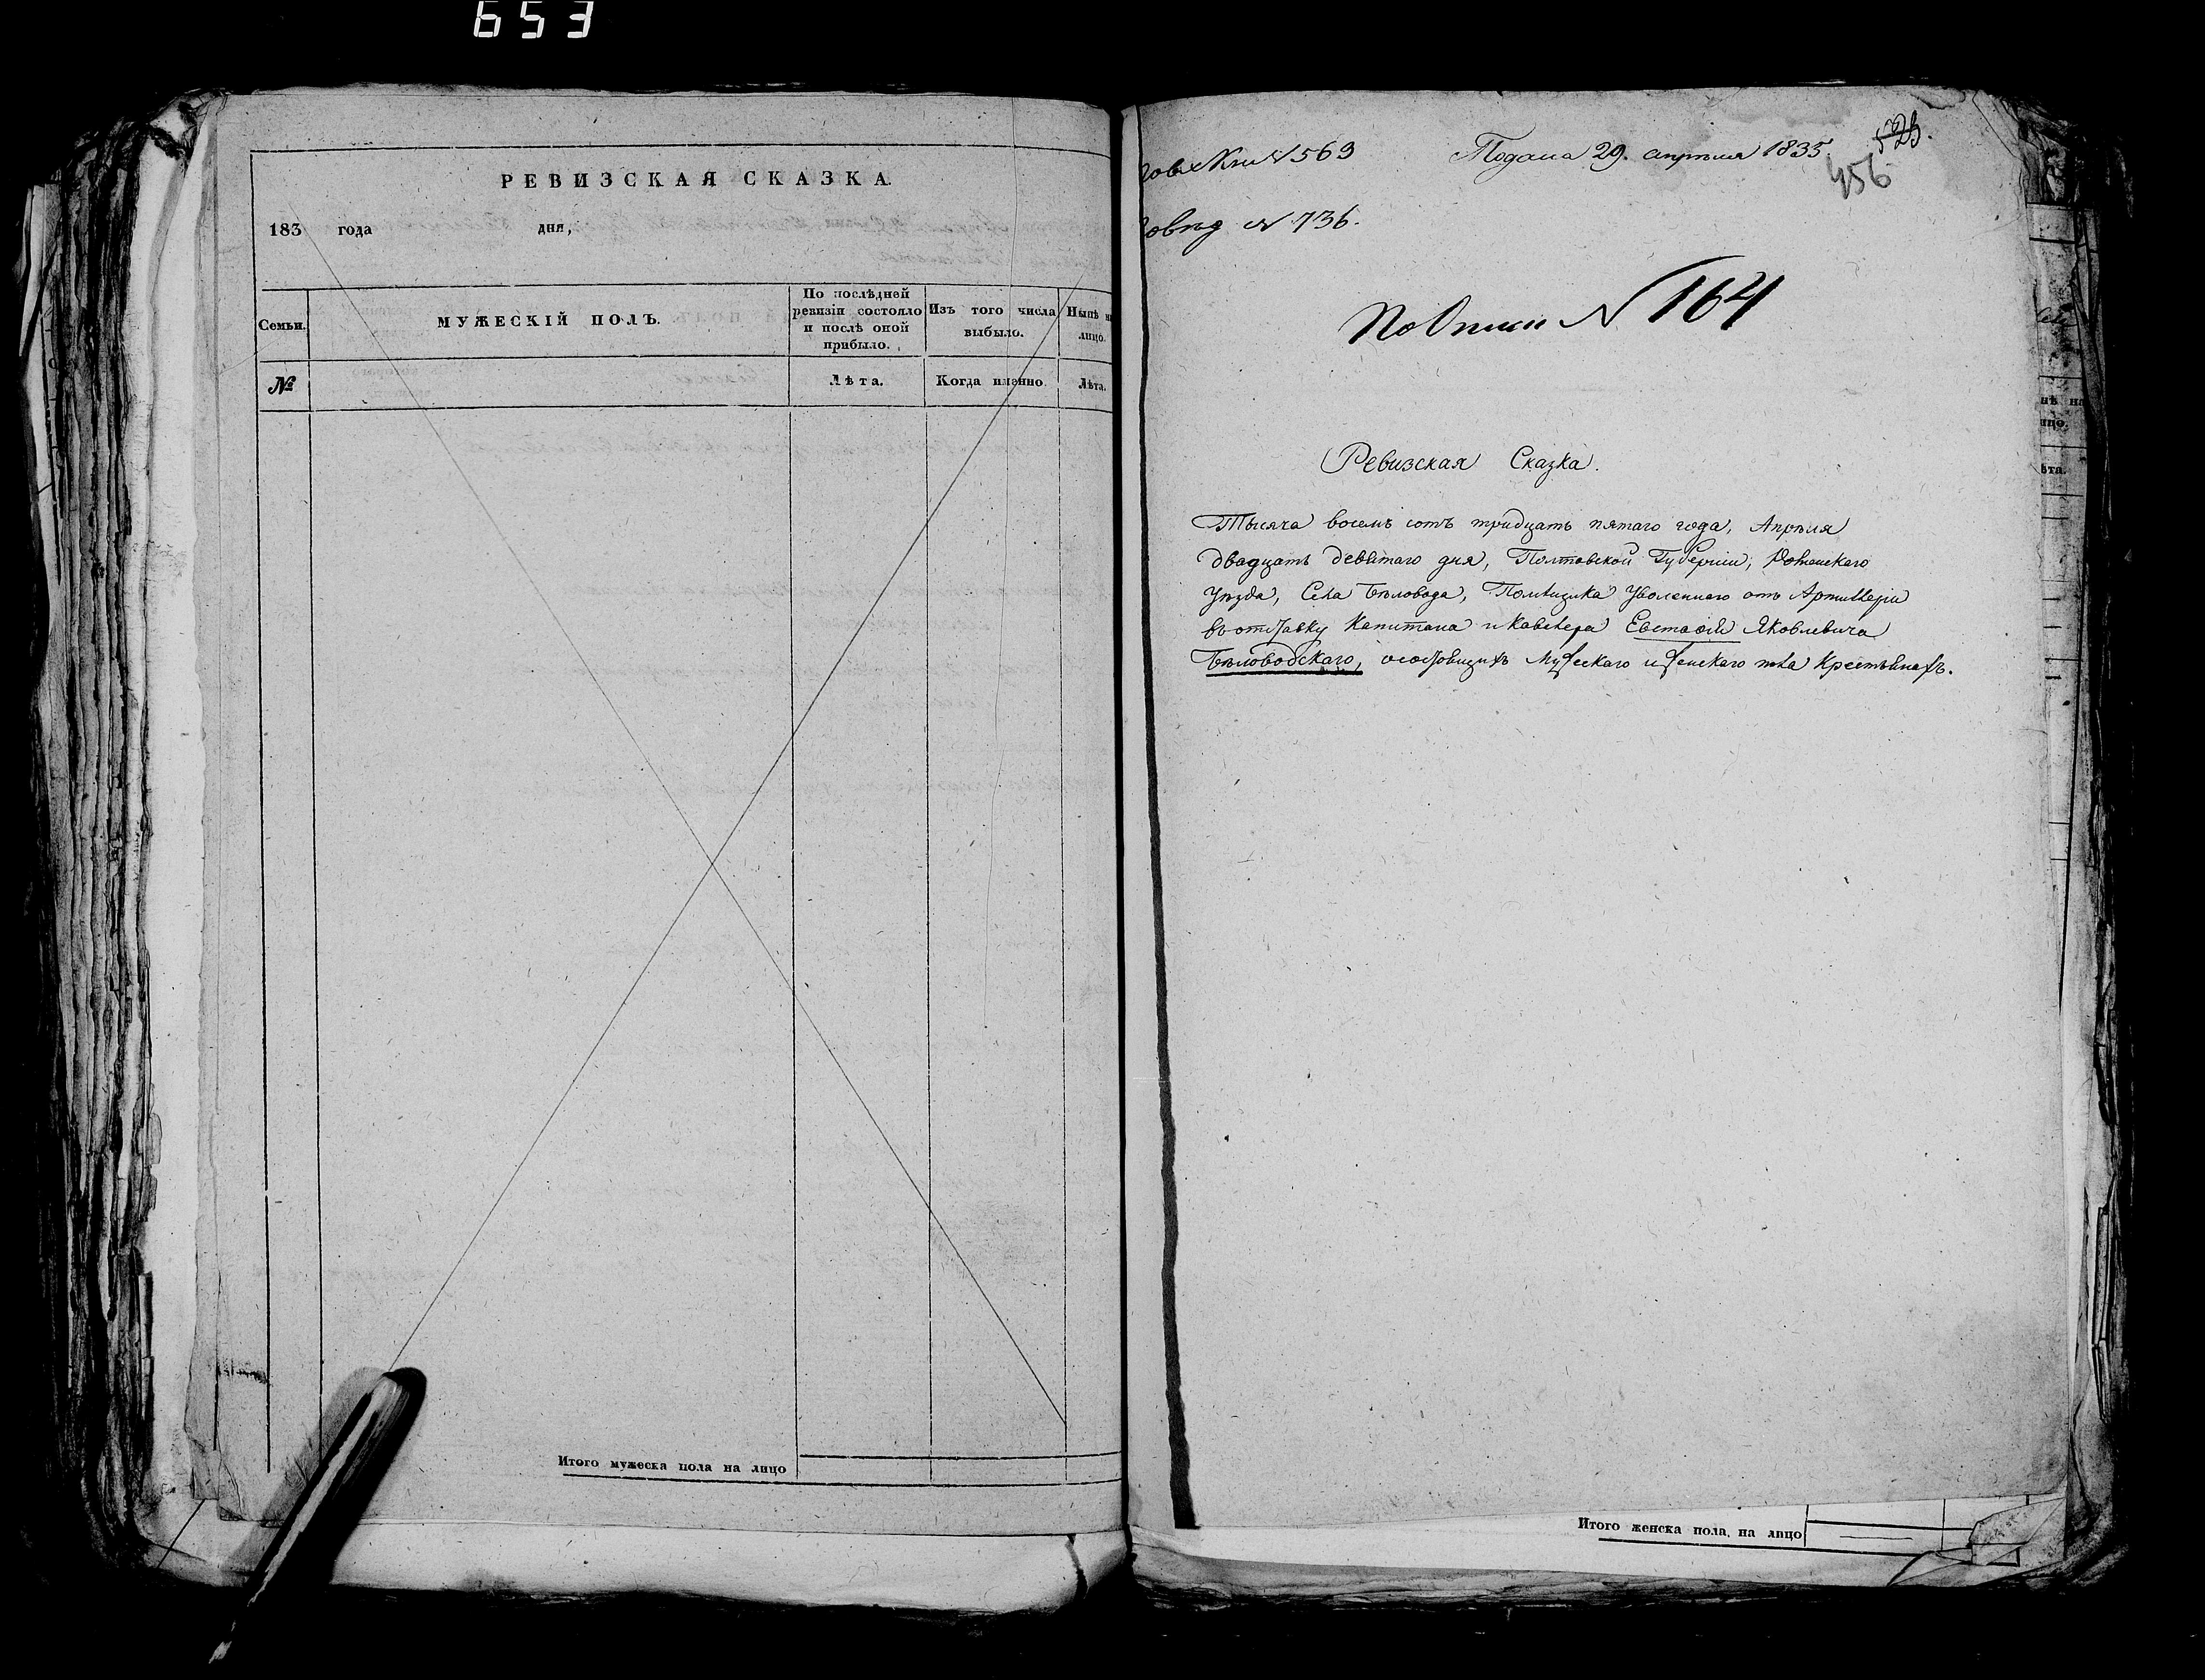 653
РЕВИЗСКАЯ СКАЗКА.
183 года дня,
Семьи.
МУЖЕСКІЙ ПОЛЪ.
По послѣдней
ревизіи состояло
и послѣ оной
прибыло.
Изъ того числа
выбыло.
Нынѣ на
лицо.
№
Лѣта.
Когда именно.
Лѣта.
Итого мужеска пола на лицо
№ 569
Подана 29. апрѣля 1835
523.
456
№ 736.
По Описи № 164
Ревизская Сказка.
Тысяча восемь сотъ тридцать пятаго года, Апрѣля
двадцать девятаго дня, Полтавской Губерніи, Роменскаго
Уѣзда, Села Бѣловода, Помѣщика Уволеннаго отъ Артиллеріи
въ отставку Капитана и Кавалера Евстафія Яковлевича
Бѣловодскаго, о состоящихъ Мужескаго и Женскаго пола Крестьянахъ.
нѣ на
лицо.
ѣта.
Итого женска пола, на лицо